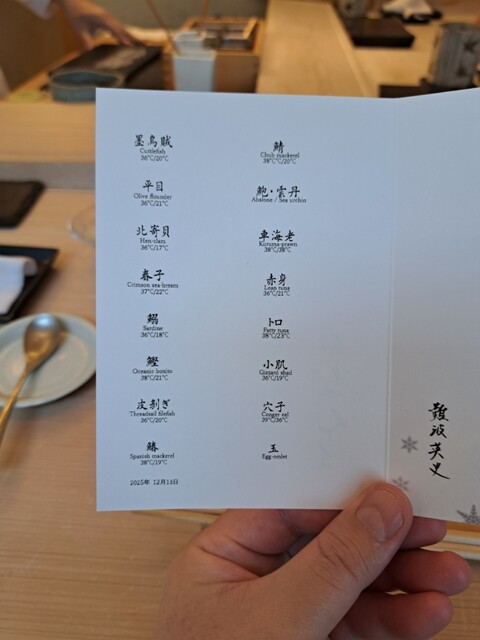 墨烏賊
Cuttlefish
36℃/20℃
平目
Olive flounder
36℃/21℃
北寄貝
Hen-clam
36℃/17℃
春子
Crimson sea-bream
37℃/22℃
鰯
Sardine
36℃/18℃
鰹
Oceanic bonito
38℃/21℃
皮剥ぎ
Threadsail filefish
36℃/20℃
鰆
Spanish mackerel
38℃/19℃
2025年 12月18日
鯖
Chub mackerel
38℃/20℃
鮑・雲丹
Abalone / Sea urchin
車海老
Kuruma-prawn
38℃/38℃
赤身
Lean tuna
36℃/21℃
トロ
Fatty tuna
38℃/23℃
小肌
Gizzard shad
36℃/19℃
穴子
Conger eel
39℃/36℃
玉
Egg-omlet
難波英史